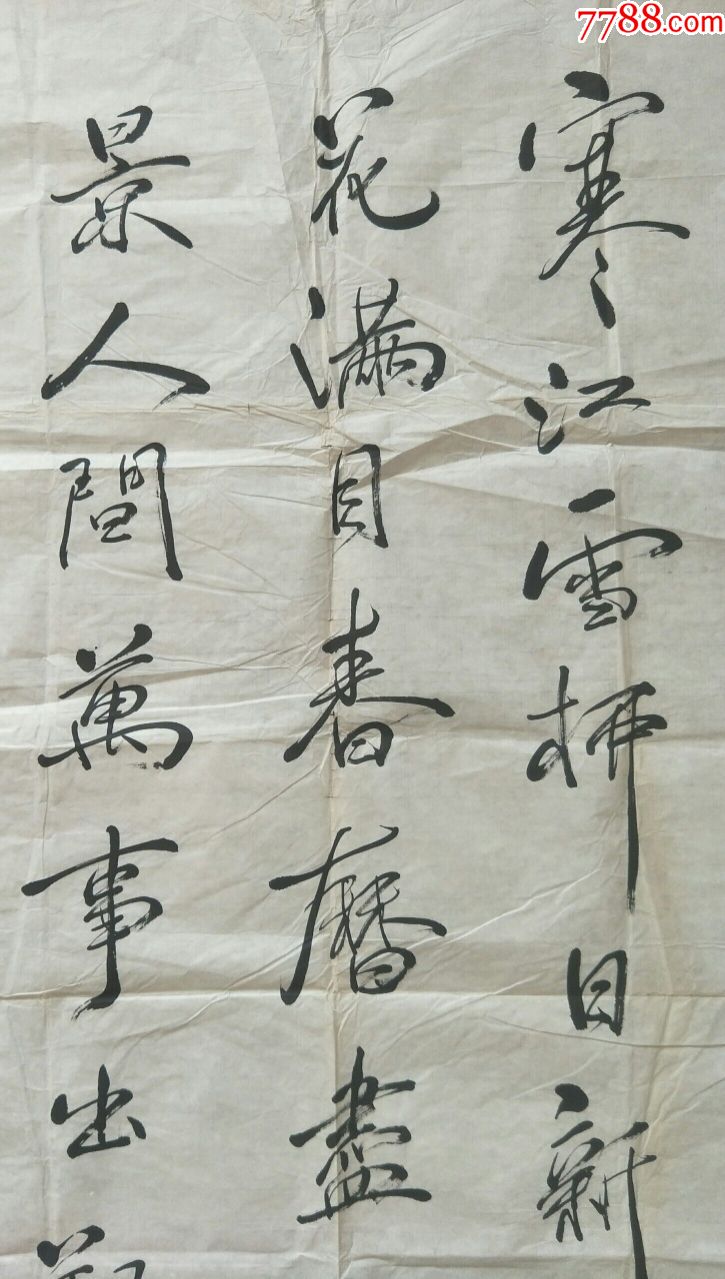 7788.com
寒江雪柳日新
花滿目春曆盡
景人間萬事出